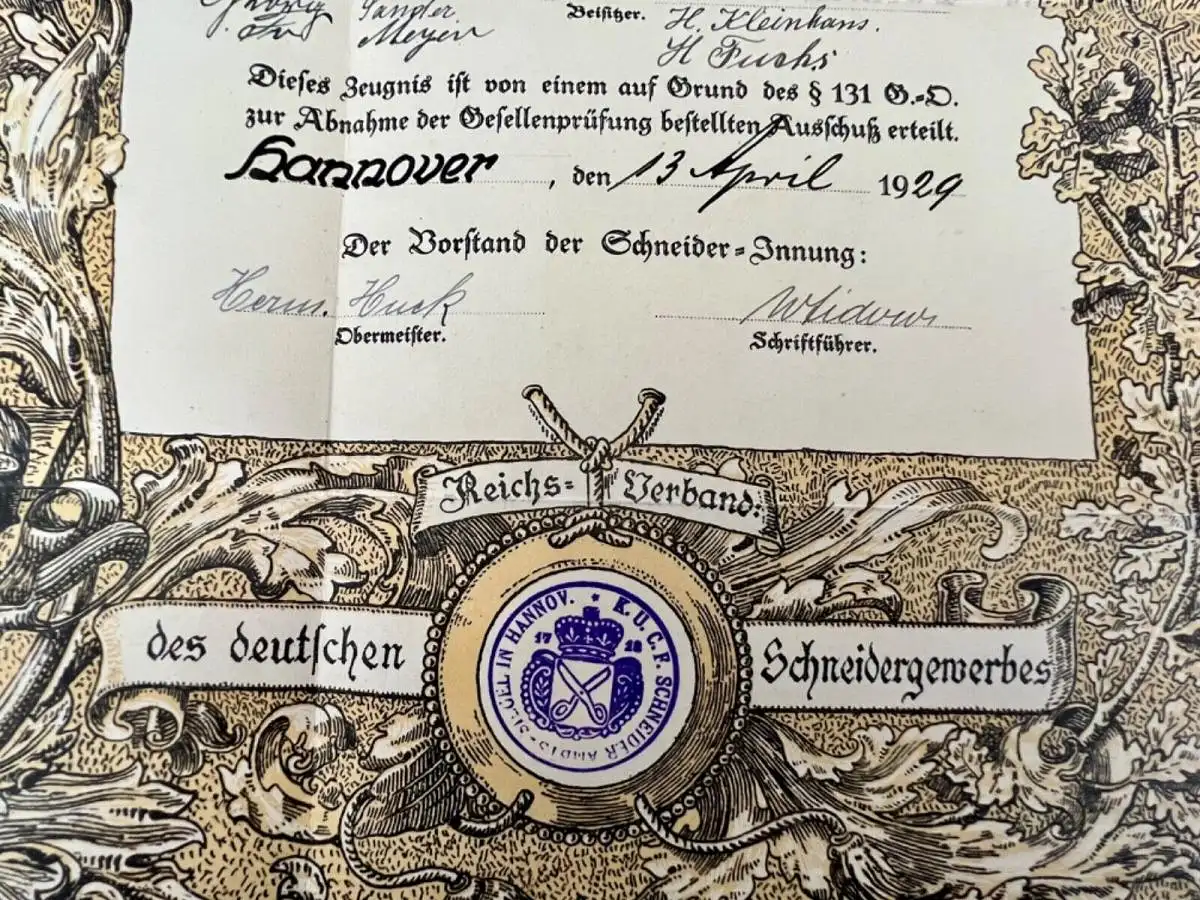 Sander. Beisitzer. H. Kleinhans.
Meyer H Fuchs
Dieses Zeugnis ist von einem auf Grund des § 131 G.=O.
zur Abnahme der Gesellenprüfung bestellten Ausschuß erteilt.
Hannover, den 13 April 1929
Der Vorstand der Schneider=Innung:
Herm. Huck
Obermeister. Schriftführer.
Reichs= Verband:
des deutschen Schneidergewerbes
K. U. C. F. SCHNEIDER AMDTS SIEGEL IN HANNOV. *
17 18